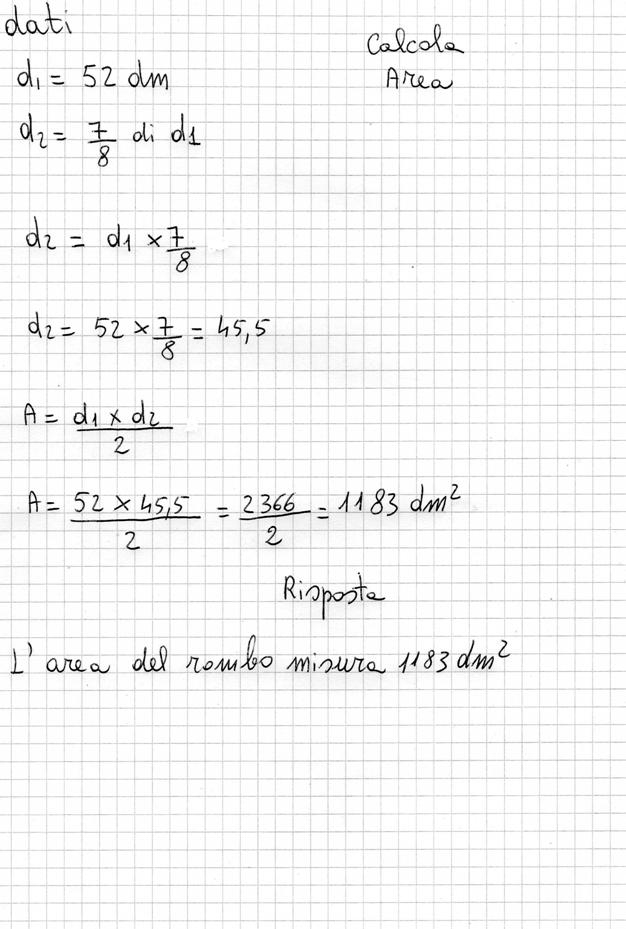 dati
Calcola
Area
d₁ = 52 dm
d₂ = 7/8 di d1
d₂ = d1 × 7/8
d₂ = 52 × 7/8 = 45,5
A = d1 × d2 / 2
A = 52 × 45,5 / 2 = 2366 / 2 = 1183 dm²
Risposta
L' area del rombo misura 1183 dm²